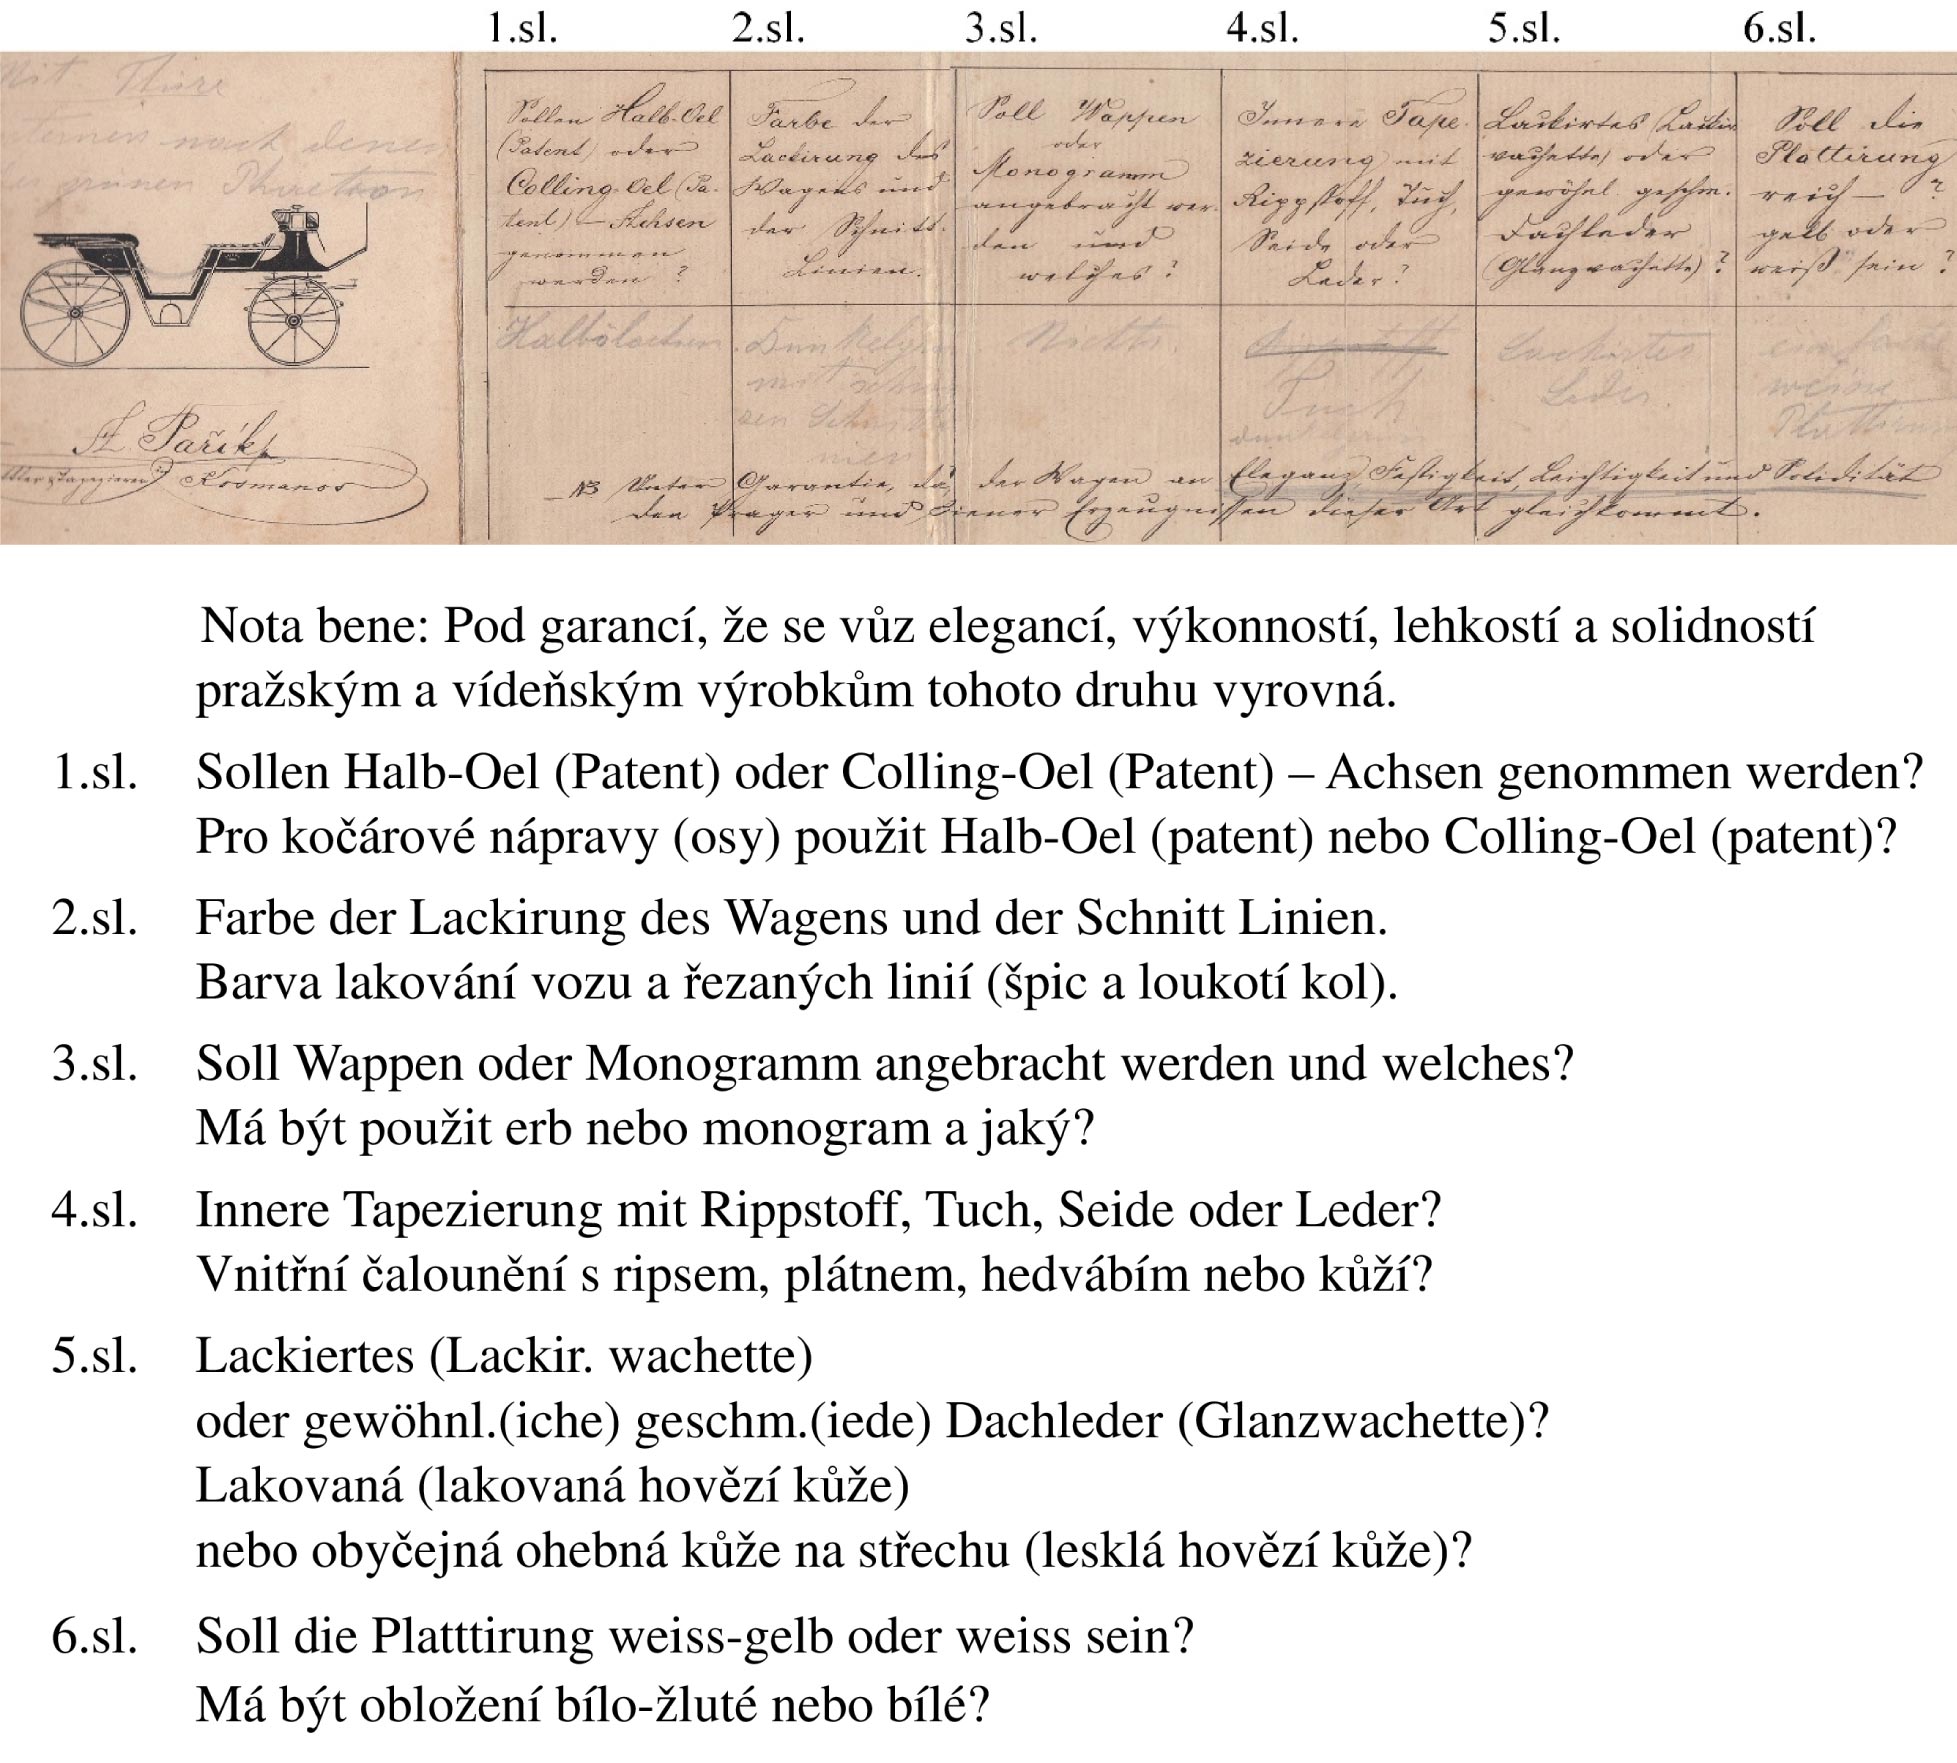 1.sl. 2.sl. 3.sl. 4.sl. 5.sl. 6.sl.
Mit Thüre
nach denen
grünen Phaeton
F. Pařík
Kosmanos
Sollen Halb-Oel
(Patent) oder
Colling-Oel (Pa-
tent) – Achsen
genommen
werden?
Farbe der
Lackirung des
Wagens und
der Schnitt-
Linien.
Soll Wappen
oder
Monogramm
angebracht wer-
den und
welches?
Innere Tape-
zierung mit
Rippstoff, Tuch,
Seide oder
Leder?
Lackirtes (Lackir
vachette) oder
gewöhnl. geschm.
Dachleder
(Glanzvachette)?
Soll die
Plattirung
reich – ?
gelb oder
weiß sein?
Halbölachsen
Dunkelgrün
mit schwar
zen Schnittli
nien
Nichts.
Tuch
dunkelgrün
Lackirtes
Leder.
einfache
weisse
Plattirung
NB Unter Garantie, daß der Wagen an Eleganz, Festigkeit, Leichtigkeit und Solidität
den Prager und Wiener Erzeugnissen dieser Art gleichkommt.
Nota bene: Pod garancí, že se vůz elegancí, výkonností, lehkostí a solidností
pražským a vídeňským výrobkům tohoto druhu vyrovná.
1.sl. Sollen Halb-Oel (Patent) oder Colling-Oel (Patent) – Achsen genommen werden?
Pro kočárové nápravy (osy) použit Halb-Oel (patent) nebo Colling-Oel (patent)?
2.sl. Farbe der Lackirung des Wagens und der Schnitt Linien.
Barva lakování vozu a řezaných linií (špic a loukotí kol).
3.sl. Soll Wappen oder Monogramm angebracht werden und welches?
Má být použit erb nebo monogram a jaký?
4.sl. Innere Tapezierung mit Rippstoff, Tuch, Seide oder Leder?
Vnitřní čalounění s ripsem, plátnem, hedvábím nebo kůží?
5.sl. Lackiertes (Lackir. wachette)
oder gewöhnl.(iche) geschm.(iede) Dachleder (Glanzwachette)?
Lakovaná (lakovaná hovězí kůže)
nebo obyčejná ohebná kůže na střechu (lesklá hovězí kůže)?
6.sl. Soll die Platttirung weiss-gelb oder weiss sein?
Má být obložení bílo-žluté nebo bílé?